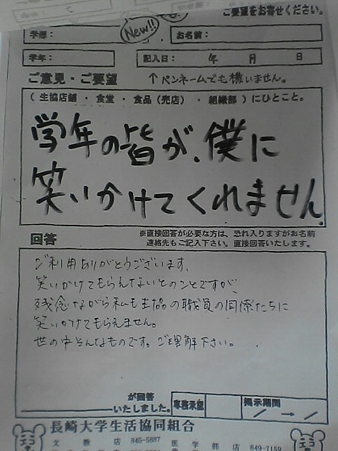 ご要望をお寄せください。
New!!
学部：
お名前：
学年：
記入日： 年 月 日
ご意見・ご要望 ↑ペンネームでも構いません。
（生協店舗 ・ 食堂 ・ 食品（売店） ・ 組織部）にひとこと。
学年の皆が、僕に
笑いかけてくれません。
回答
※直接回答が必要な方は、恐れ入りますがお名前
連絡先もご記入下さい。直接回答いたします。
ご利用ありがとうございます。
笑いかけてもらえないとのことですが、
残念ながら私も生協の職員の同僚たちに
笑いかけてもらえません。
世の中そんなものです。ご理解下さい。
が回答
いたしました。
専務承認
掲示期間
／ → ／
長崎大学生活協同組合
文教店 845-5887 医学部店 849-7159